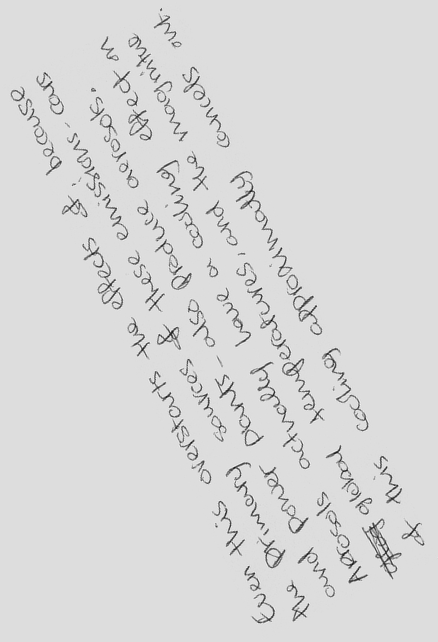 Even this overstants the effects of because
the primery sources of these emissions - cars
and power pants - also produce aerosols.
Aerosols actually have a cooling effect on
global temperatures, and the magnitue
of this cooling approximatly cancels out.